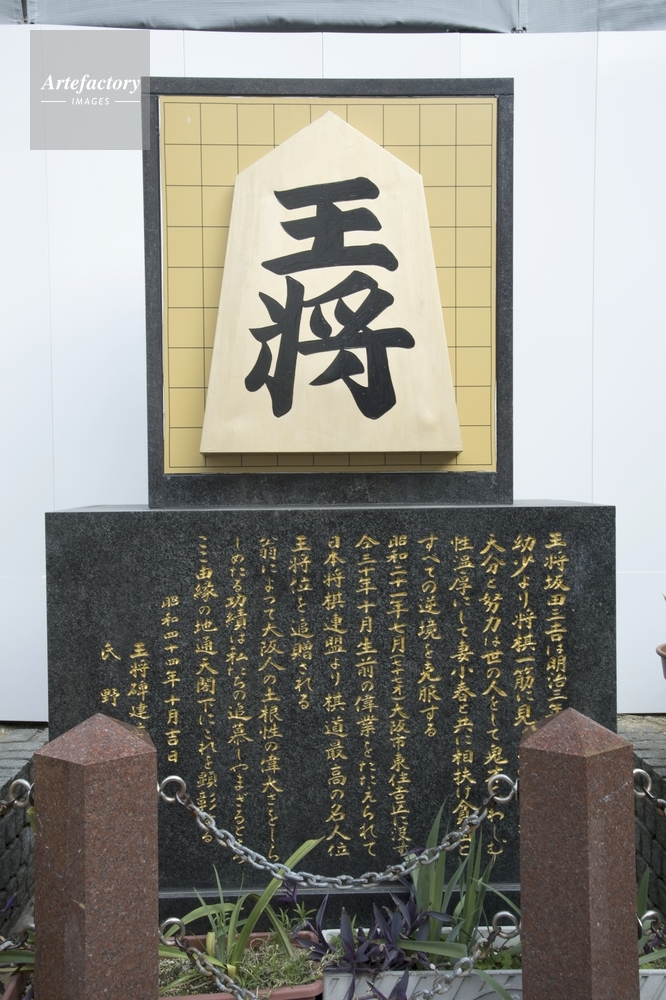 Artefactory
IMAGES
王将
王将坂田三吉は明治三
幼少より将棋一筋に見
天分と努力は世の人をして鬼
性温厚にして妻小春と共に相扶け
すべての逆境を克服する
昭和二十一年七月(七七才)大阪市東住吉区に没す
仝三十年十月生前の偉業をたたえられて
日本将棋連盟より棋道最高の名人位
王将位を追贈される
翁によって大阪人の土根性の偉大さをしら
しめたる功績は私たちの追慕しやまざるところ
ここ由縁の地通天閣下にこれを顕彰する
昭和四十四年十月吉日
王将碑建
氏野